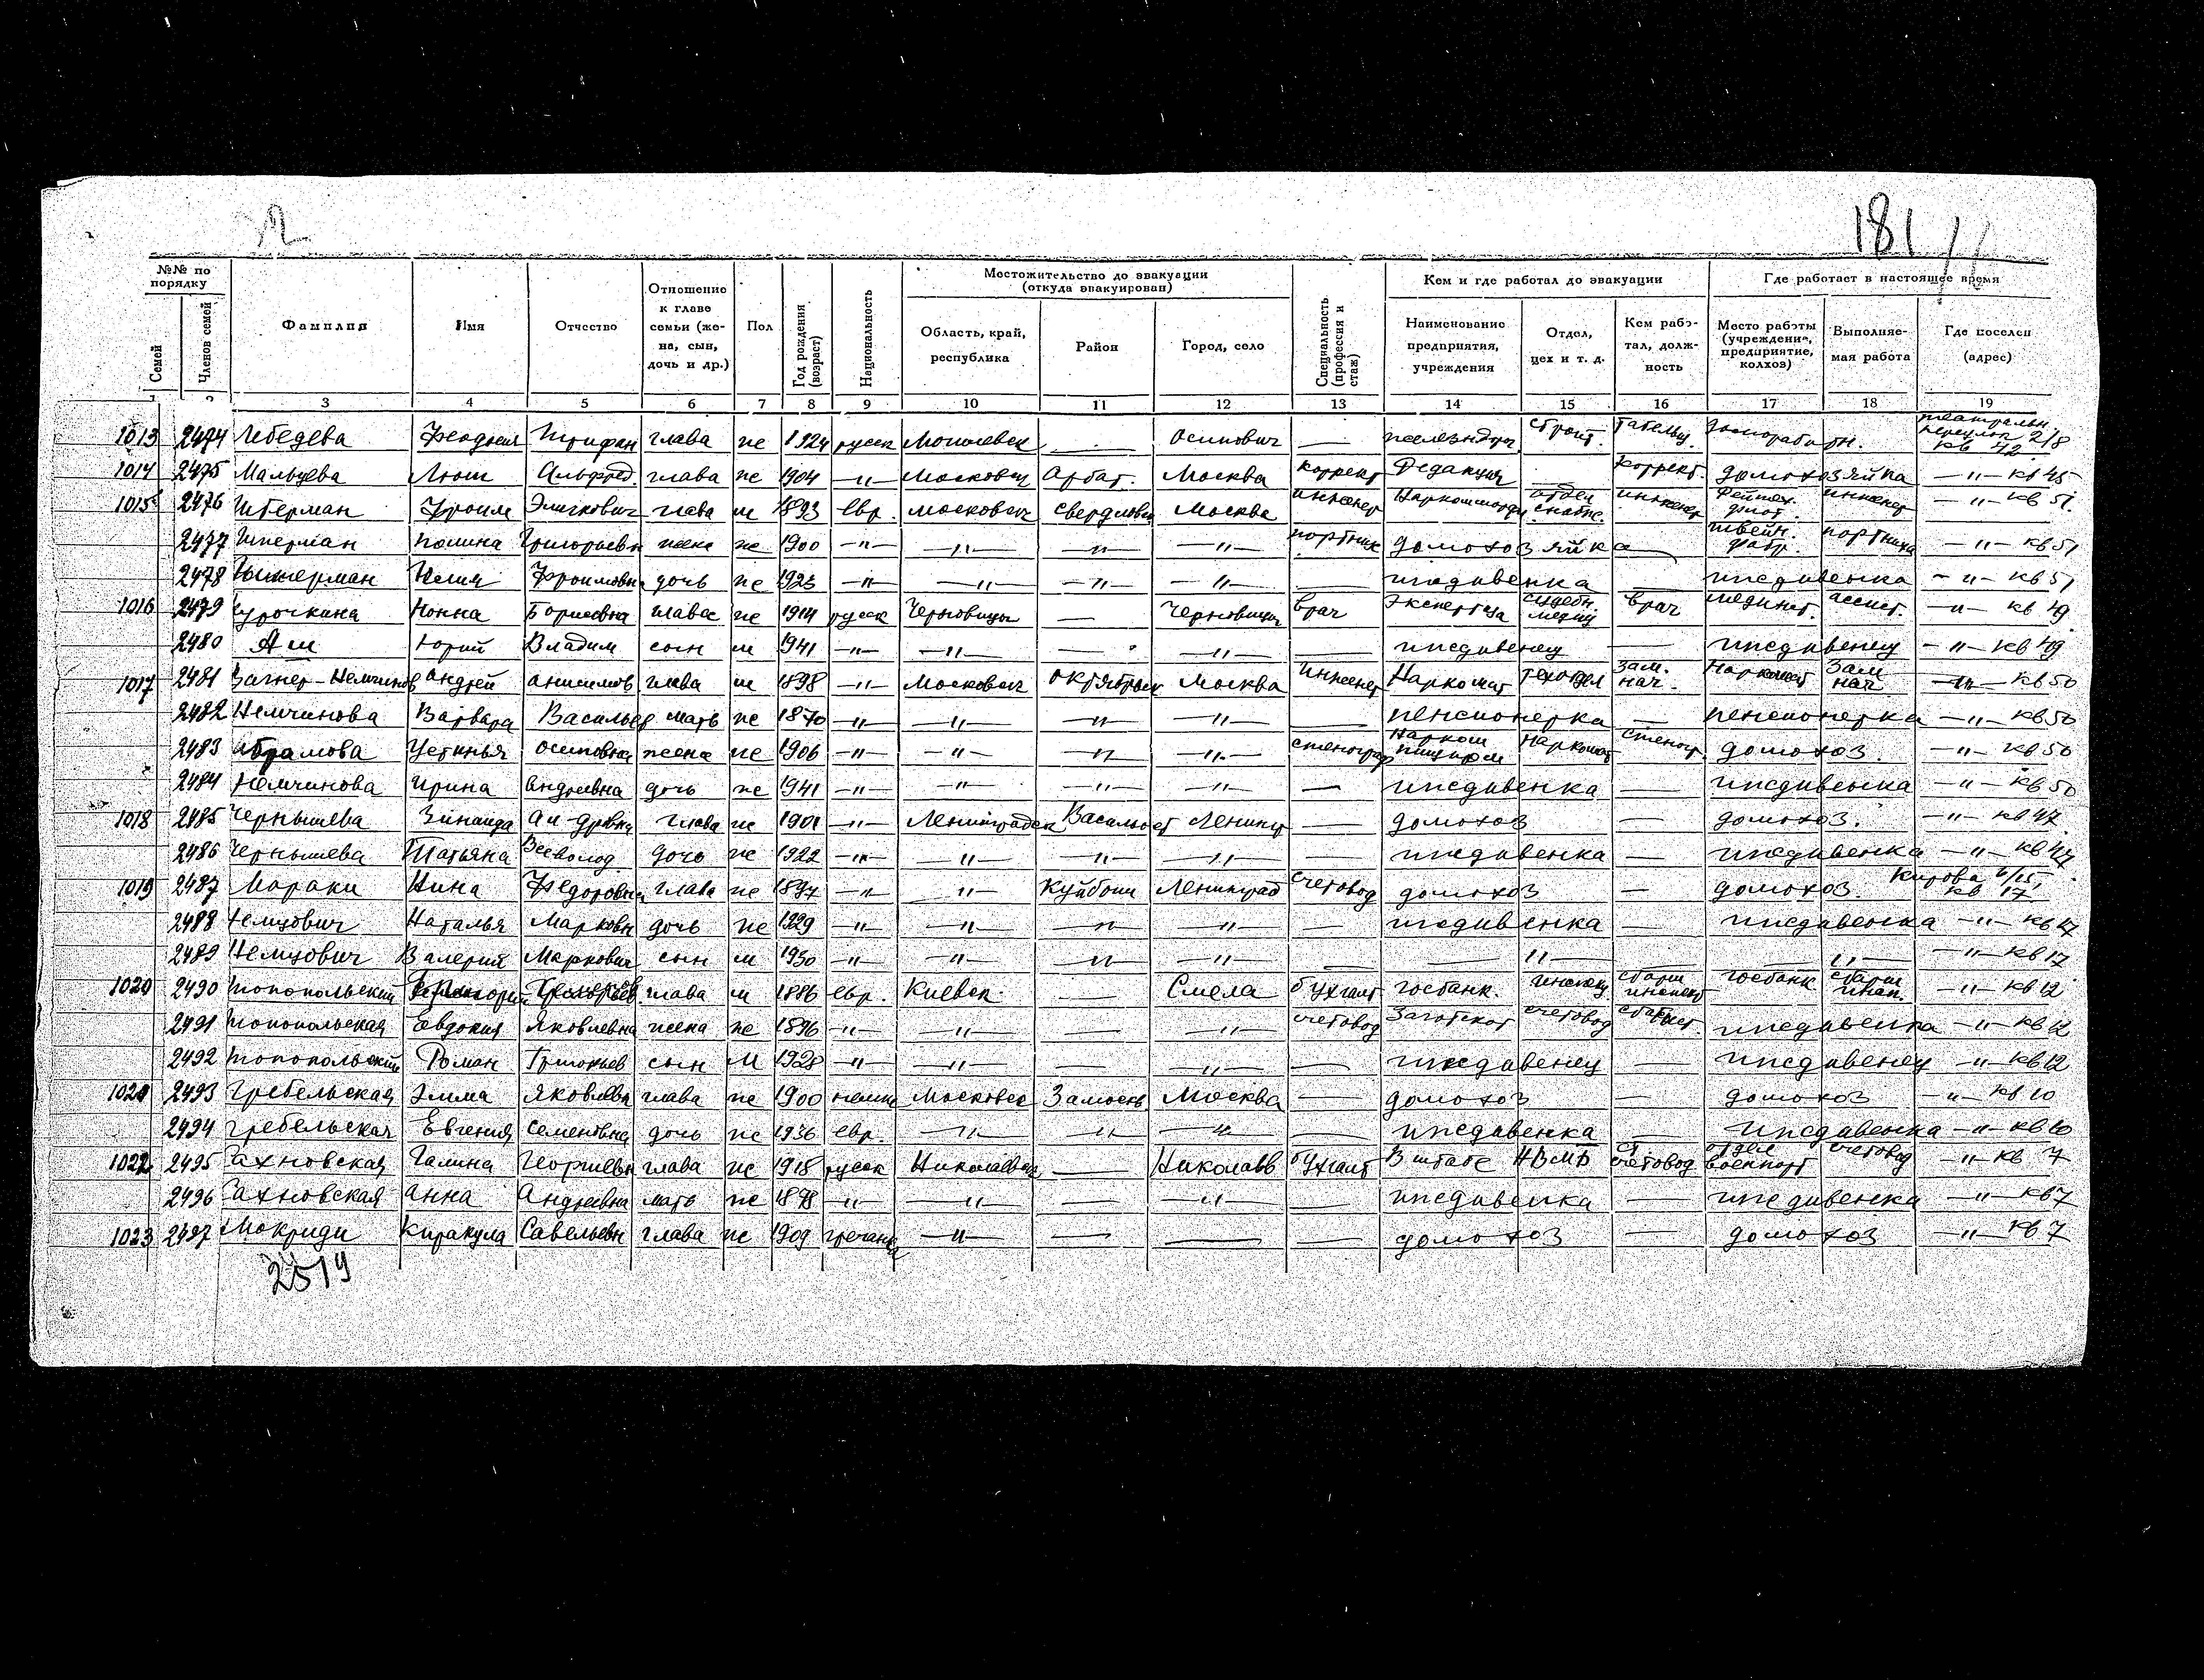 181
№№ по порядку
Семей
Членов семей
Фамилия
Имя
Отчество
Отношение к главе семьи (жена, сын, дочь и др.)
Пол
Год рождения (возраст)
Национальность
Местожительство до эвакуации (откуда эвакуирован)
Область, край, республика
Район
Город, село
Специальность (профессия и стаж)
Кем и где работал до эвакуации
Наименование предприятия, учреждения
Отдел, цех и т. д.
Кем работал, должность
Где работает в настоящее время
Место работы (учреждение, предприятие, колхоз)
Выполняемая работа
Где поселен (адрес)
3 4 5 6 7 8 9 10 11 12 13 14 15 16 17 18 19
1013 2474 Лебедева глава же 1924 русск — Осипович — Строит. Табельщ. Театральн. переулок 2/8 кв 42
1014 2475 Мальцева Люш Альфред. глава же 1904 —"— Московск Арбат. Москва коррект Редакция коррект. домохозяйка —"— кв 45
1015 2476 Фроим глава м 1893 евр. московск свердловск Москва инженер отдел снабже. инженер инженер —"— кв 51.
2477 полина Григорьевн жена же 1900 —"— —"— —"— —"— портних домохозяйка швейн. фабр. портниха —"— кв 51
2478 Фроимовна дочь же 1923 —"— —"— —"— —"— — иждивенка — иждивенка —"— кв 51
1016 2479 Курочкина Нонна Борисовна глава же 1914 русск Черновицы — Черновицы врач Экспертиза судебн. медиц врач мединст. ассист. —"— кв 49
2480 Аш Юрий Владим сын м 1941 —"— —"— — —"— — иждивенец — иждивенец —"— кв 49
1017 2481 Вагнер-Немчинов Андрей Анисимов глава м 1898 —"— Московск октябрьск Москва инженер Наркомат техотдел зам. нач. Наркомат Зам нач —"— кв 50
2482 Немчинова Варвара Васильев мать же 1870 —"— —"— —"— —"— — пенсионерка — пенсионерка —"— кв 50
2483 Абрамова Устинья Осиповна жена же 1906 —"— —"— —"— —"— стенограф Нарком пищпром Наркомат стеногр. домохоз. —"— кв 50
2484 Немчинова Ирина Андреевна дочь же 1941 —"— —"— —"— —"— — иждивенка — иждивенка —"— кв 50
1018 2485 Чернышева Зинаида глава же 1901 —"— Ленинградск Васильост Ленингр — домохоз — домохоз. —"— кв 47.
2486 Чернышева Татьяна Всеволод. дочь же 1922 —"— —"— —"— —"— — иждивенка — иждивенка —"— кв 47
1019 2487 Мараки Нина Федоровна глава же 1897 —"— —"— Куйбыш Ленинград счетовод домохоз — домохоз. Кирова 6/15, кв 17
2488 Немцович Наталья Марковн дочь же 1929 —"— —"— —"— —"— — иждивенка — иждивенка —"— кв 17
2489 Немцович Валерий Маркович сын м 1930 —"— —"— —"— —"— — —"— —"— —"— кв 17
1020 2490 Топопольский глава м 1886 евр. Киевск. — Смела бухгалт госбанк. госбанк —"— кв 12
2491 Топопольская Евдокия Яковлевна жена же 1896 —"— —"— — —"— счетовод Заготскот счетовод иждивенка —"— кв 12
2492 Топопольский Роман Григорьев сын м 1928 —"— —"— — —"— — иждивенец — иждивенец —"— кв 12
1021 2493 Гребельская Эмма Яковлевн глава же 1900 немка Московск Замоскв. Москва — домохоз — домохоз —"— кв 10
2494 Гребельская Евгения Семеновна дочь же 1936 евр. —"— —"— —"— — иждивенка — иждивенка —"— кв 10
1022 2495 Сахновская Галина Георгиевн глава же 1918 русск Николаевск — Николаев бухгалт В штабе НВМБ ст. счетовод отдел военпорт счетовод —"— кв 7
2496 Сахновская Анна Андреевна мать же 1878 —"— —"— — —"— — иждивенка — иждивенка —"— кв 7
1023 2497 Мокриди Киракула Савельевн глава же 1909 гречанка —"— — — — домохоз — домохоз —"— кв 7
2519